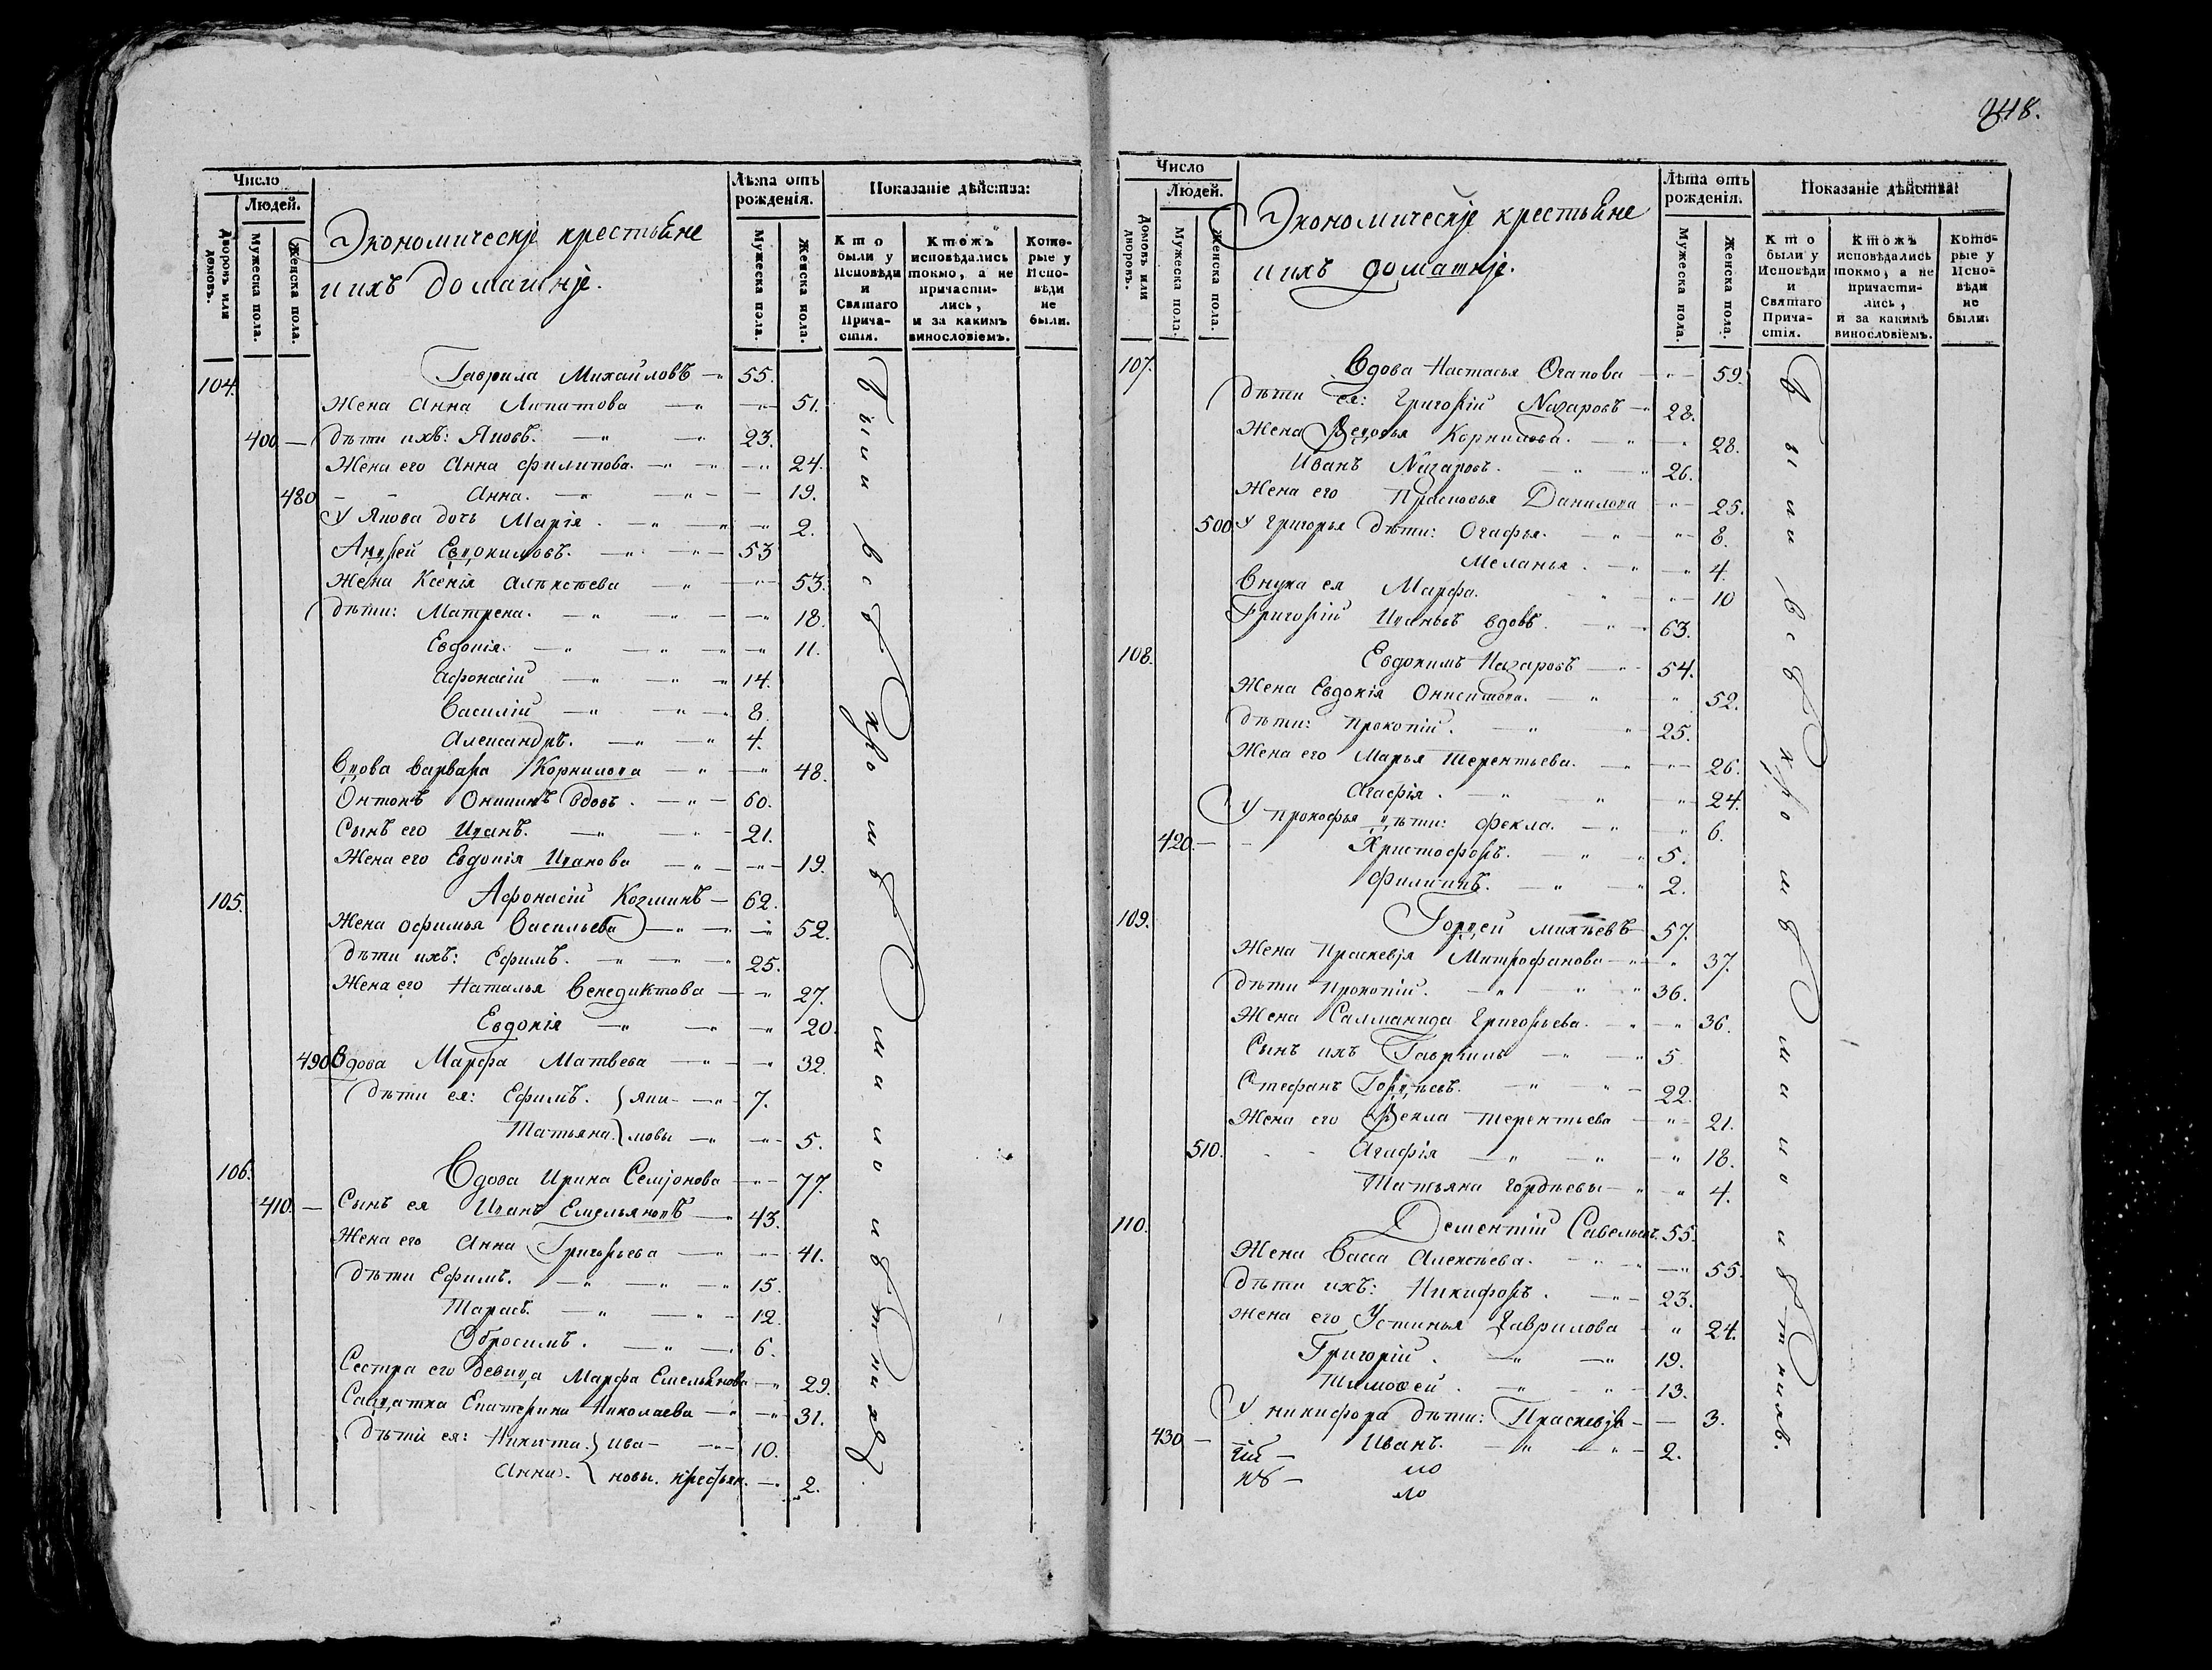 348.
Число
Людей.
Дворовъ или домовъ.
Мужеска пола.
Женска пола.
Экономическіе крестьяне
и ихъ домашніе.
Лѣта отъ рожденія.
Мужеска пола.
Женска пола.
Показаніе дѣйства:
Кто были у Исповѣди и Святаго Причастія.
Ктожъ исповѣдались токмо, а не причастились, и за какимъ винословіемъ.
Которые у Исповѣди не были.
104. Гаврила Михайловъ — 55.
Жена Анна Липатова — 51.
400 — дѣти ихъ: Яковъ. — 23.
Жена его Анна Филипова. — 24.
480 — Анна. — 19.
У Якова дочь Марія. — 2.
Андрей Евдокимовъ. — 53
Жена Ксенія Алексѣева — 53.
дѣти: Матрена. — 18.
Евдокія. — 11.
Афонасій — 14.
Василій — 8.
Александръ. — 4.
Вдова Варвара Корнилова — 48.
Онтонъ Оникинъ вдовъ. — 60.
Сынъ его Иванъ. — 21.
Жена его Евдокія Иванова — 19.
105. Афонасій Козминъ — 62.
Жена Офимья Васильева — 52.
дѣти ихъ: Ефимъ. — 25.
Жена его Наталья Венедиктова — 27.
Евдокія — 20.
490 Вдова Марфа Матвеева — 32.
дѣти ея: Ефимъ. } Яки- — 7.
Татьяна. } мовы — 5.
106. Вдова Ирина Семіонова — 77.
410. — Сынъ ея Иванъ Емельяновъ — 43.
Жена его Анна Григорьева — 41.
дѣти Ефимъ. — 15.
Тарасъ. — 12.
Обросимъ. — 6.
Сестра его девица Марфа Емельянова — 29.
Салдатка Екатерина Николаева — 31.
дѣти ея: Никита. } Ива- — 10.
Анна. } новы. крестьян. — 2.
Были всѣ
Число
Людей.
Домовъ или дворовъ.
Мужеска пола.
Женска пола.
Экономическіе крестьяне
и ихъ домашніе.
Лѣта отъ рожденія.
Мужеска пола.
Женска пола.
Показаніе дѣйства:
Кто были у Исповѣди и Святаго Причастія.
Ктожъ исповѣдались токмо, а не причастились, и за какимъ винословіемъ.
Которые у Исповѣди не были.
107. Вдова Настасья Огапова — 59.
дѣти ея: Григорій Назаровъ — 28.
Жена Федосья Корнилова. — 28.
Иванъ Назаровъ. — 26.
Жена его Прасковья Данилова — 25.
500. У Григорья дѣти: Огафья. — 8.
Меланья. — 4.
Внука ея Марфа. — 10
Григорій Ивановъ вдовъ. — 63.
108. Евдокимъ Назаровъ — 54.
Жена Евдокія Онисимова. — 52.
дѣти: Прокопій. — 25.
Жена его Марья Терентьева. — 26.
Агафія. — 24.
У Прокофья дѣти: Фекла. — 6.
420. — Христофоръ. — 5.
Филиппъ. — 2.
109. Гордей Михѣевъ — 57.
Жена Праскевія Митрофанова — 37.
дѣти Прокопій. — 36.
Жена Салманида Григорьева. — 36.
Сынъ ихъ Гавріилъ — 5.
Стефанъ Гордѣевъ. — 22.
Жена его Фекла Терентьева — 21.
510. Агафія — 18.
Татьяна Гордѣевы — 4.
110. Дементій Савельевъ. 55.
Жена Васса Алексѣева. — 55.
дѣти ихъ: Никифоръ. — 23.
Жена его Устинья Гаврилова — 24.
Григорій. — 19.
Тимоѳей. — 13.
У Никифора дѣти: Праскевія — 3.
430 — Иванъ. — 2.
Были всѣ